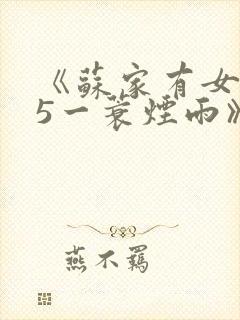 《蘇家有女
5一蓑煙雨》
燕不羈